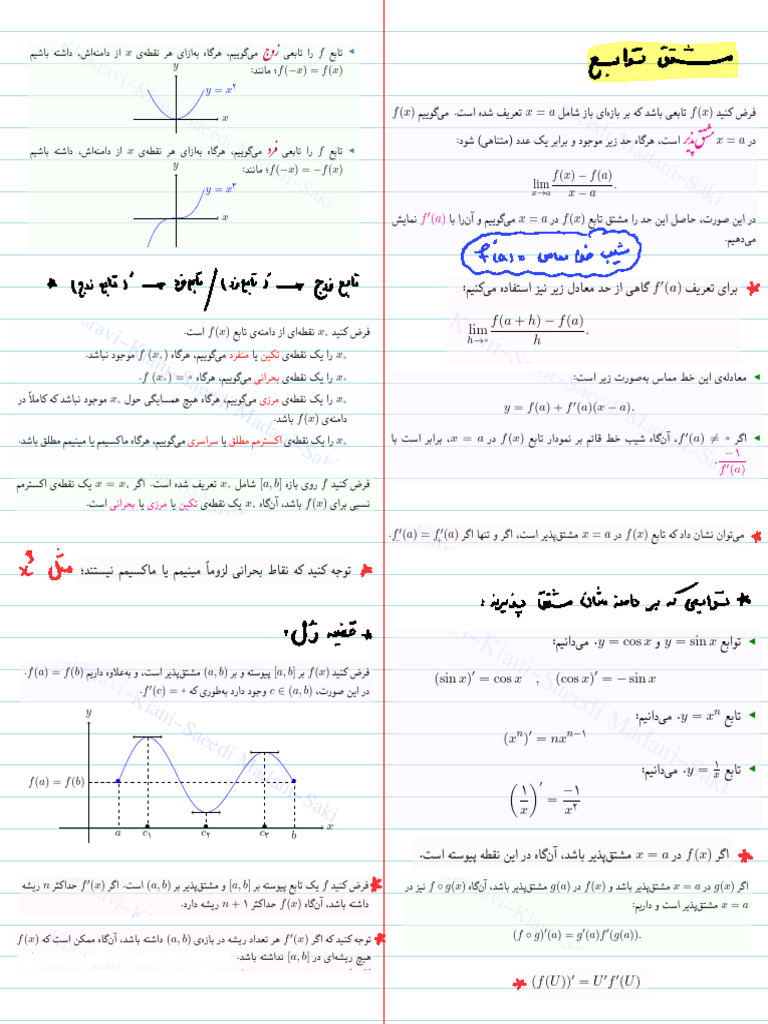 مشتق توابع
فرض کنید f(x) تابعی باشد که بر بازه‌ای باز شامل x = a تعریف شده است. می‌گوییم f(x)
در x = a مشتق‌پذیر است، هرگاه حد زیر موجود و برابر یک عدد (متناهی) شود:
lim x→a (f(x) − f(a))/(x − a).
در این صورت، حاصل این حد را مشتق تابع f(x) در x = a می‌گوییم و آن‌را با f′(a) نمایش
می‌دهیم.
شیب خط مماس = f′(a)
برای تعریف f′(a) گاهی از حد معادل زیر نیز استفاده می‌کنیم:
lim h→۰ (f(a + h) − f(a))/h.
معادله‌ی این خط مماس به‌صورت زیر است:
y = f(a) + f′(a)(x − a).
اگر f′(a) ≠ ۰، آن‌گاه شیب خط قائم بر نمودار تابع f(x) در x = a، برابر است با
−۱/f′(a).
می‌توان نشان داد که تابع f(x) در x = a مشتق‌پذیر است، اگر و تنها اگر f′₊(a) = f′₋(a).
* توابعی که بر دامنه شان مشتق پذیرند:
توابع y = sin x و y = cos x. می‌دانیم:
(sin x)′ = cos x , (cos x)′ = − sin x
تابع y = xⁿ. می‌دانیم:
(xⁿ)′ = nxⁿ⁻¹
تابع y = ۱/x. می‌دانیم:
(۱/x)′ = −۱/x²
اگر f(x) در x = a مشتق‌پذیر باشد، آن‌گاه در این نقطه پیوسته است.
اگر g(x) در x = a مشتق‌پذیر باشد و f(x) در g(a) مشتق‌پذیر باشد، آن‌گاه f ∘ g(x) نیز در
x = a مشتق‌پذیر است و داریم:
(f ∘ g)′(a) = g′(a)f′(g(a)).
* (f(U))′ = U′f′(U)
تابع f را تابعی زوج می‌گوییم، هرگاه به‌ازای هر نقطه‌ی x از دامنه‌اش، داشته باشیم
f(−x) = f(x)؛ مانند:
y
y = x²
x
تابع f را تابعی فرد می‌گوییم، هرگاه به‌ازای هر نقطه‌ی x از دامنه‌اش، داشته باشیم
f(−x) = −f(x)؛ مانند:
y
y = x³
x
فرض کنید x۰ نقطه‌ای از دامنه‌ی تابع f(x) است.
x۰ را یک نقطه‌ی تکین یا منفرد می‌گوییم، هرگاه f′(x۰) موجود نباشد.
x۰ را یک نقطه‌ی بحرانی می‌گوییم، هرگاه f′(x۰) = ۰.
x۰ را یک نقطه‌ی مرزی می‌گوییم، هرگاه هیچ همسایگی حول x۰ موجود نباشد که کاملاً در
دامنه‌ی f(x) باشد.
x۰ را یک نقطه‌ی اکسترمم مطلق یا سراسری می‌گوییم، هرگاه ماکسیمم یا مینیمم مطلق باشد.
فرض کنید f روی بازه [a, b] شامل x۰ تعریف شده است. اگر x = x۰ یک نقطه‌ی اکسترمم
نسبی برای f(x) باشد، آن‌گاه x۰ یک نقطه‌ی تکین یا مرزی یا بحرانی است.
* توجه کنید که نقاط بحرانی لزوماً مینیمم یا ماکسیمم نیستند؛ مثل x³
* قضیه رل:
فرض کنید f(x) بر [a, b] پیوسته و بر (a, b) مشتق‌پذیر است، و به‌علاوه داریم f(a) = f(b).
در این صورت، c ∈ (a, b) وجود دارد به‌طوری که f′(c) = ۰.
y
f(a) = f(b)
a c۱ c۲ c۳ b x
فرض کنید f یک تابع پیوسته بر [a, b] و مشتق‌پذیر بر (a, b) است. اگر f′(x) حداکثر n ریشه
داشته باشد، آن‌گاه f(x) حداکثر n + ۱ ریشه دارد.
توجه کنید که اگر f′(x) هر تعداد ریشه در بازه‌ی (a, b) داشته باشد، آن‌گاه ممکن است که f(x)
هیچ ریشه‌ای در [a, b] نداشته باشد.